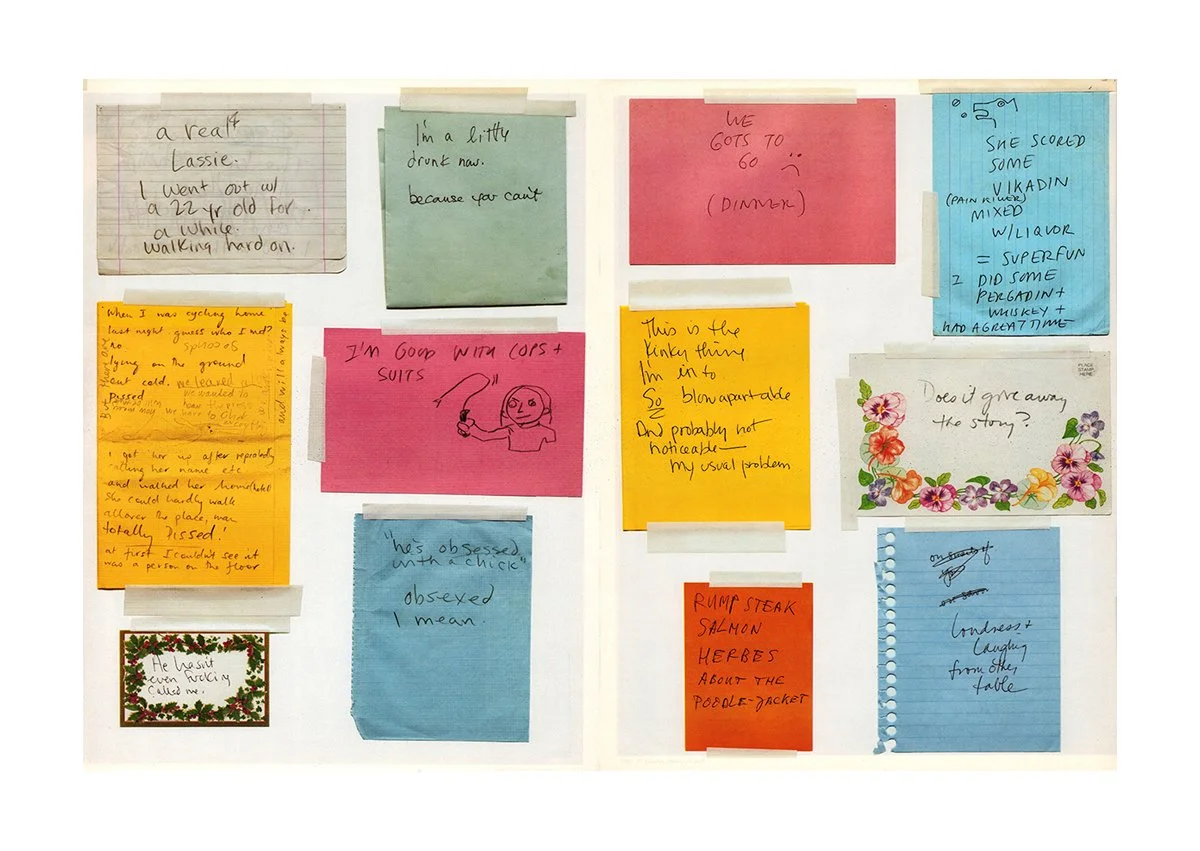 a real
Lassie.
I went out w/
a 22 yr old for
a while.
walking hard on.
I'm a little
drunk now.
because you can't
When I was cycling home
last night. guess who I met?
no.
lying on the ground
out cold.
pissed
I got her up after repeatedly
calling her name etc
and walked her home/hotel
She could hardly walk
allover the place, man
totally Pissed!
at first I couldn't see it
was a person on the floor
and will always be
I'M GOOD WITH COPS +
SUITS
"he's obsessed
with a chick"
obsexed
I mean.
He hasn't
even fucking
called me.
WE
GOTS TO
GO
(DINNER)
SHE SCORED
SOME
VIKADIN
(PAIN KILLER)
MIXED
W/LIQUOR
= SUPERFUN
I DID SOME
PERGADIN +
WHISKEY +
HAD A GREAT TIME
This is the
kinky thing
I'm in to.
So blowapartable
And probably not
noticeable—
my usual problem
PLACE
STAMP
HERE
Does it give away
the story?
RUMP STEAK
SALMON
HERBES
ABOUT THE
POODLE-JACKET
Loudness +
Laughing
from other
table